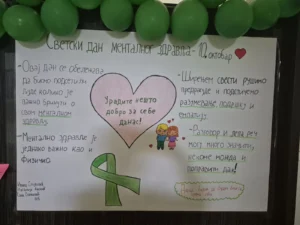 Светски дан менталног здравља- 10. октобар
- Овај дан се обележава
да бисмо подсетили
људе колико је
важно бринути о
свом менталном
здрављу
- Ментално здравље је
једнако важно као и
физичко
Урадите нешто
добро за себе
данас!
- Ширењем свести рушимо
предрасуде и подстичемо
разумевање подршку и
емпатију
- Разговор и лепа реч
могу много значити
некоме можда и
променити дан!